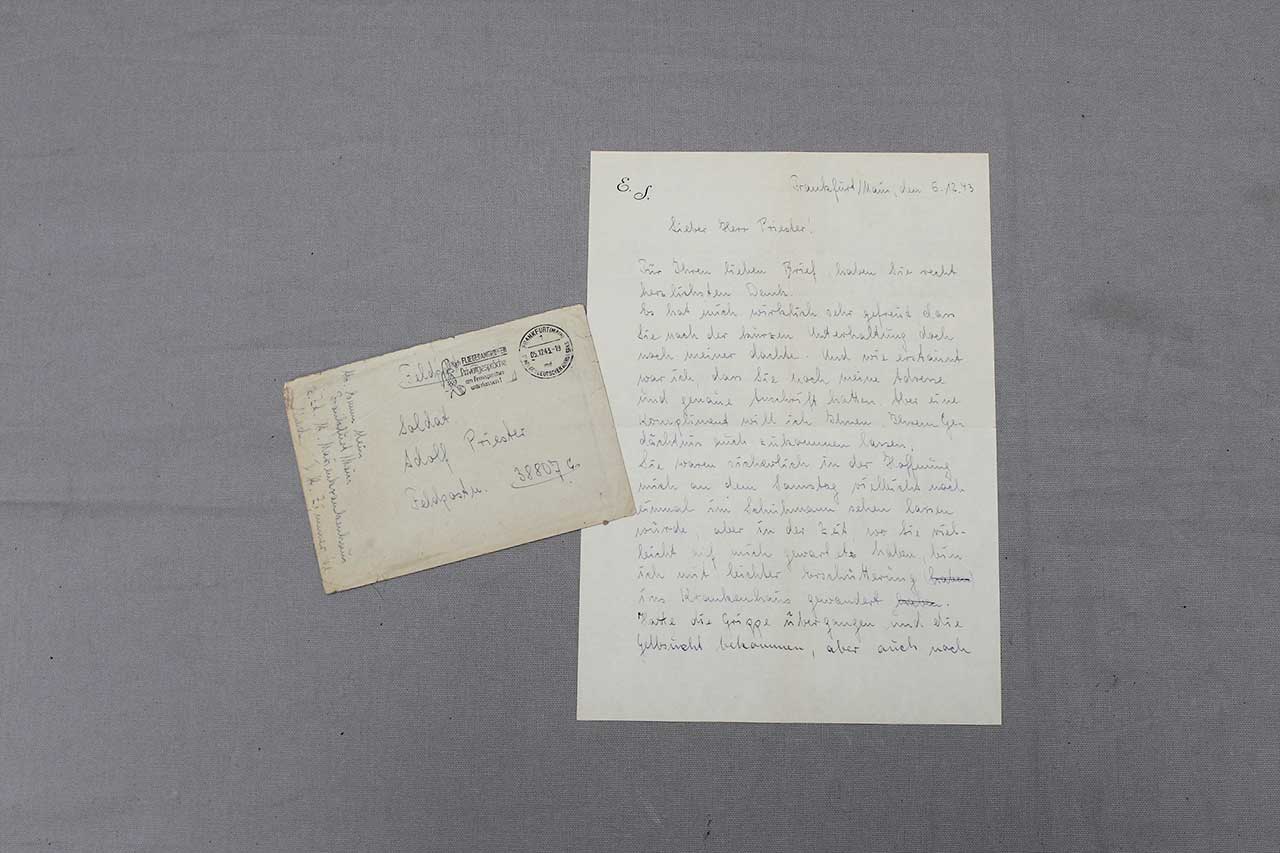 Feldpost
NACH FLIEGERANGRIFFEN
Privatgespräche
am Fernsprecher
unterlassen!
FRANKFURT (MAIN)
1
05.12.43.-19
Soldat
Adolf Priester
Feldpostn. 38807 C
Frankfurt/Main
E. S.
Frankfurt/Main, den 6.12.43
Lieber Herr Priester!
Für Ihren lieben Brief, haben Sie recht
herzlichsten Dank!
Es hat mich wirklich sehr gefreut dass
Sie nach der kurzen Unterhaltung doch
noch meiner dachte. Und wie erstaunt
war ich, dass Sie noch meine Adresse
und genaue Anschrift hatten. Aber eine
Kompliment will ich Ihnen, Ihrem Ge-
dächtnis auch zukommen lassen.
Sie waren sicherlich in der Hoffnung
mich an dem Samstag vielleicht noch
einmal im Schuhmann sehen lassen
würde, aber in der Zeit, wo Sie viel-
leicht auf mich gewartet haben, bin
ich mit leichter Erschütterung haben
ins Krankenhaus gewandert haben.
Hatte die Grippe übergangen und die
Gelbsucht bekommen, aber auch noch